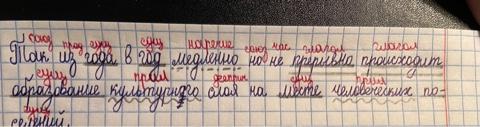 союз прод сущ сущ наречие союз час глагол глагол
Так из года в год медленно но не прерывна происходит
сущ прил сущ прил
образование культурного слоя на месте человеческих по-
сущ
селений.